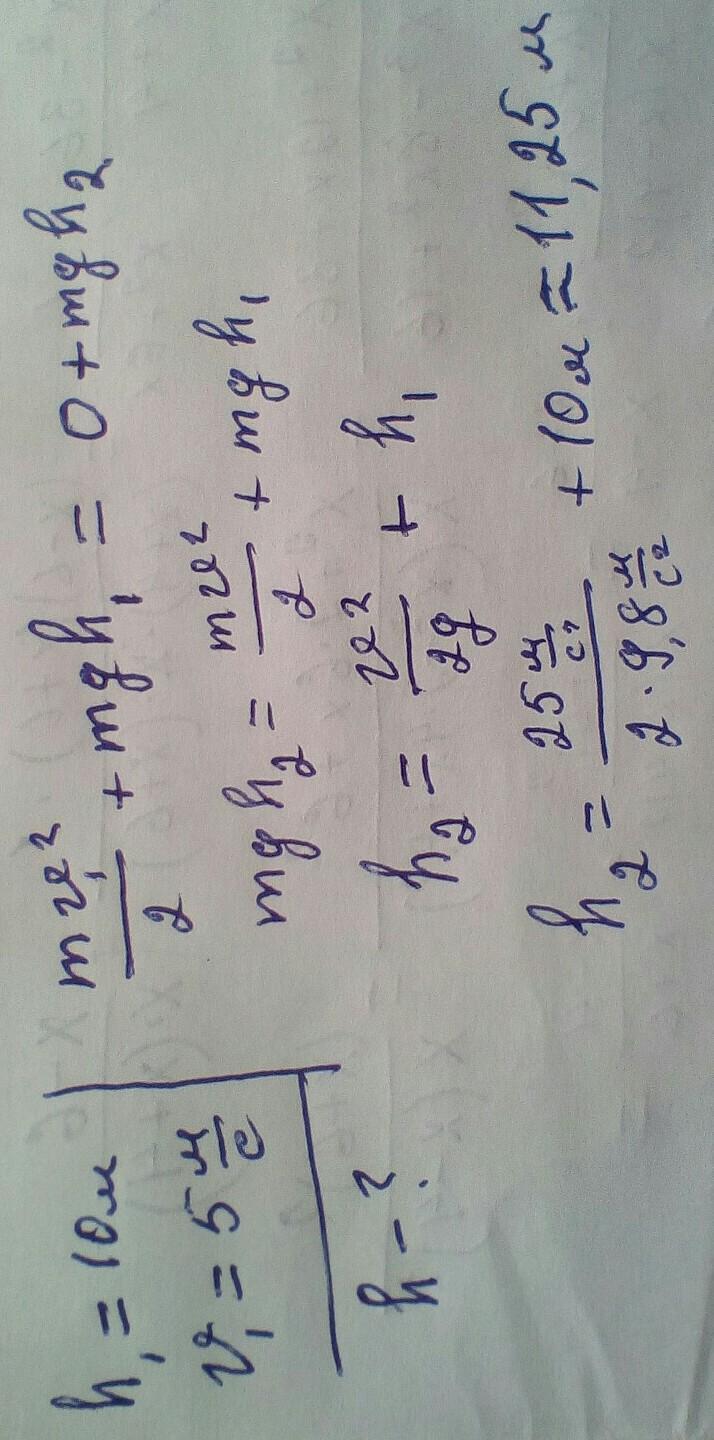 h₁ = 10м
v₁ = 5 м/с
h - ?
mv₁²/2 + mgh₁ = 0 + mgh₂
mgh₂ = mv²/2 + mgh₁
h₂ = v²/2g + h₁
h₂ = 25 м/с² / 2·9,8 м/с² + 10м ≈ 11,25 м